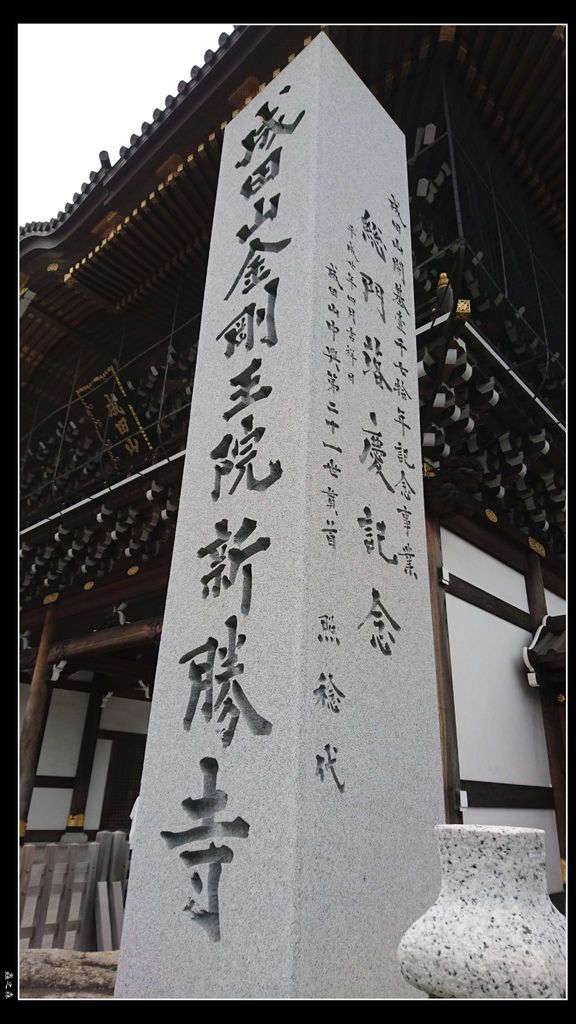 成田山金剛王院新勝寺
成田山開基壹千七拾年記念事業
総門落慶記念
平成廿年四月吉祥日
成田山中興第二十一世貫首 照稔代
成田山